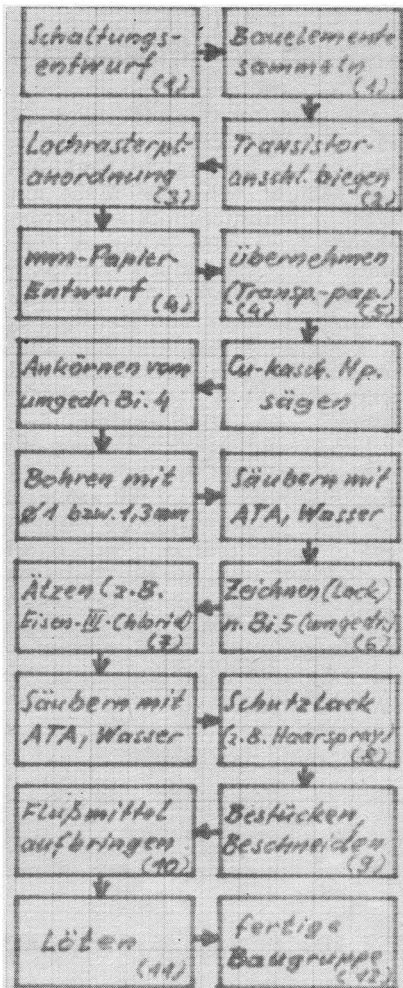 Schaltungs-
entwurf
(1)
Bauelemente
sammeln
(1)
Transistor-
anschl. biegen
(2)
Lochrasterpl.-
anordnung
(3)
mm-Papier-
Entwurf (4)
übernehmen
(Transp.-pap.)
(4) (5)
Cu-kasch. Hp.
sägen
Ankörnen vom
umgedr. Bi. 4
Bohren mit
ø 1 bzw. 1,3 mm
Säubern mit
ATA, Wasser
Zeichnen (Lack)
n. Bi. 5 (umgedr.)
(6)
Ätzen (z.B.
Eisen-III-Chlorid)
(7)
Säubern mit
ATA, Wasser
Schutzlack
(z.B. Haarspray)
(8)
Bestücken,
Beschneiden
(9)
Flußmittel
aufbringen
(10)
Löten
(11)
fertige
Baugruppe
(12)